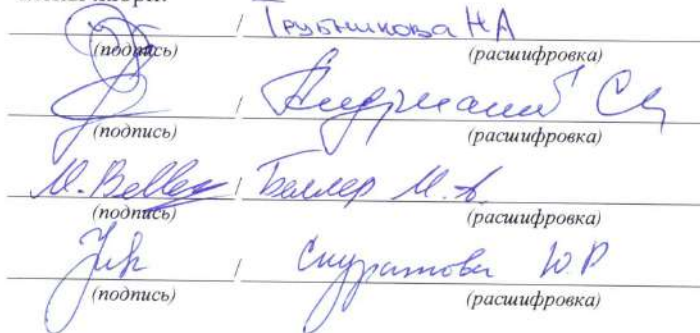 / Трубникова НА
(подпись) (расшифровка)
/
(подпись) (расшифровка)
M. Beller / Беллер М. А.
(подпись) (расшифровка)
/ Скуратова Ю.Р
(подпись) (расшифровка)